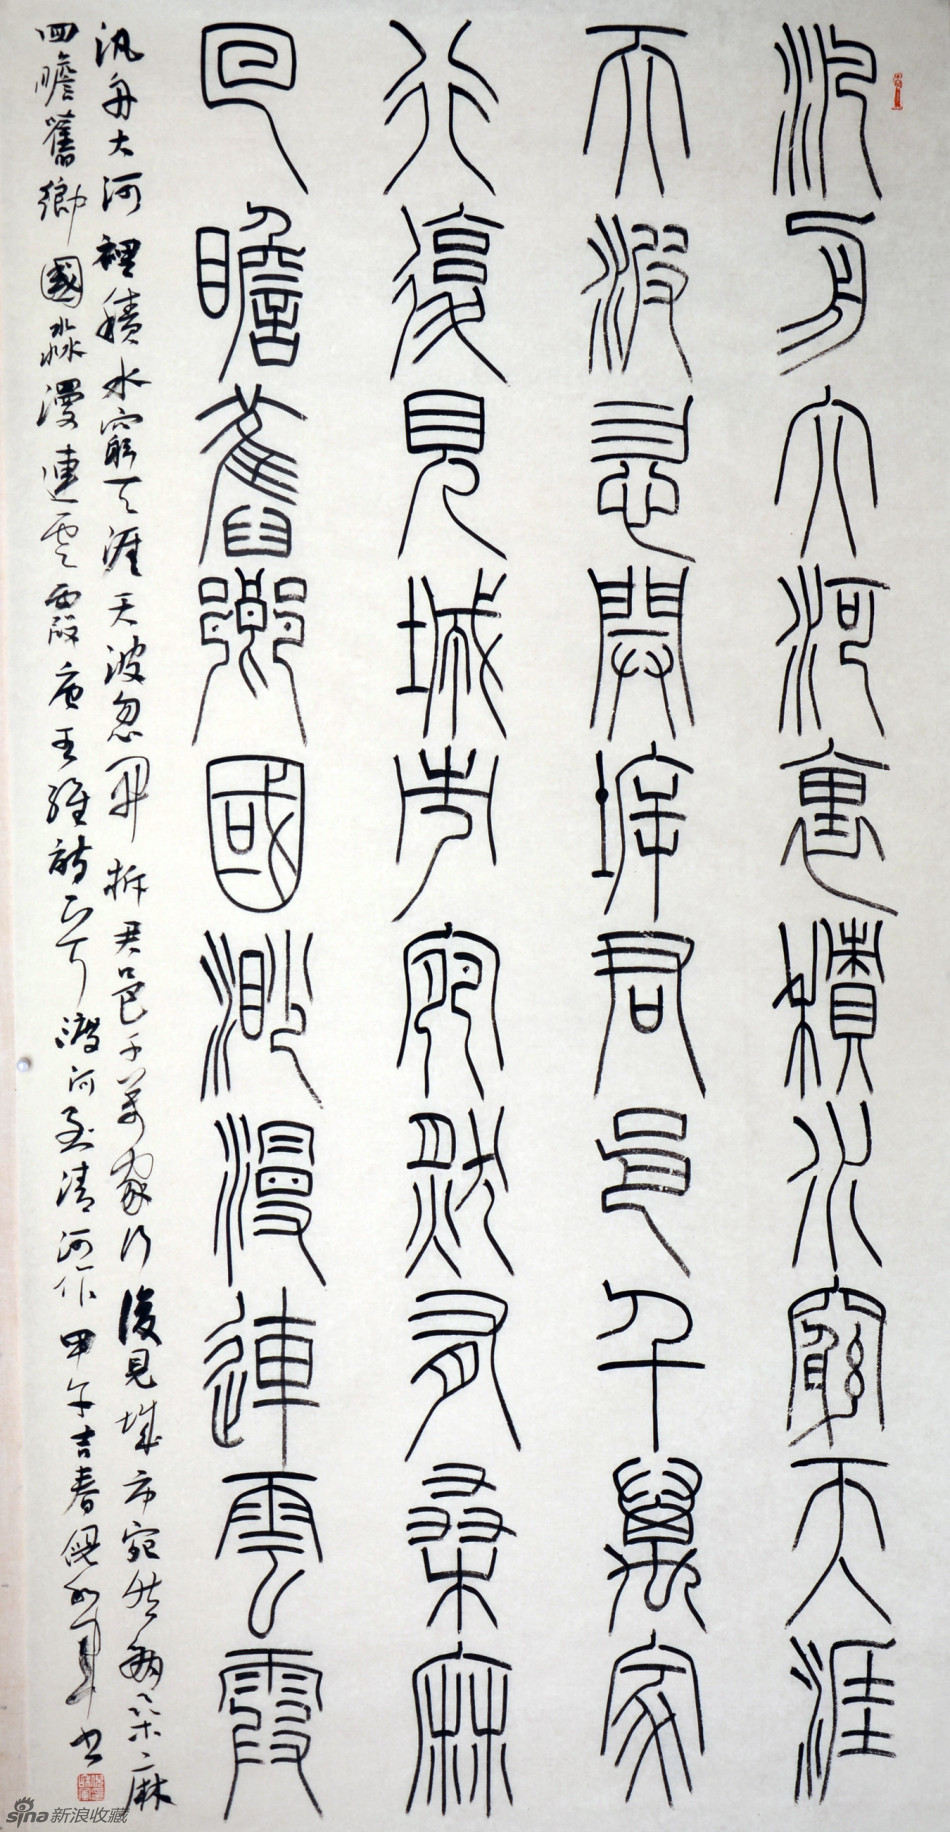 汎舟大河裏積水窮天涯
天波忽開坼君邑千萬家
行復見城市宛然有桑麻
回瞻舊鄉國渺漫連雲霞
汎舟大河裡積水窮天涯天波忽開拆君邑千萬家行復見城市宛然有桑麻
回瞻舊鄉國淼漫連雲霞唐王維詩一首渡河至清河作甲午吉春
sina新浪收藏